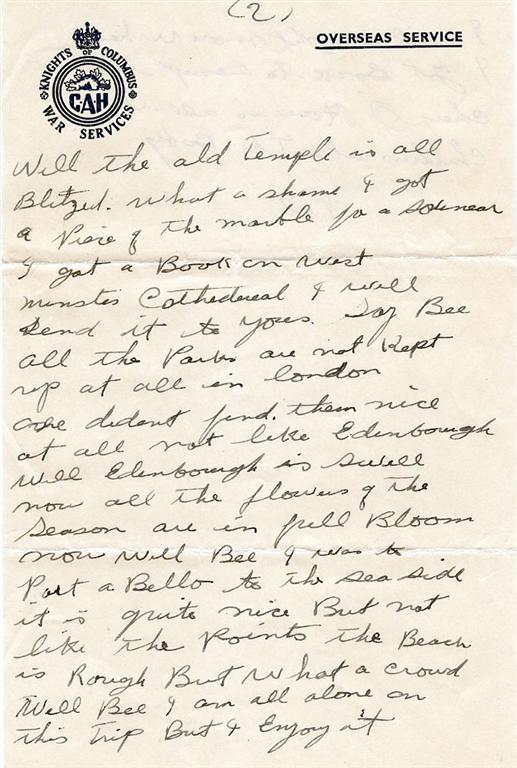 (2)
KNIGHTS OF COLUMBUS
CAH
WAR SERVICES
OVERSEAS SERVICE
Well the old Temple is all
Blitzed. What a shame I got
a Piece of the marble for a sovenear
I got a Book on West
minster Cathedereal & will
send it to yous. Say Bee
all the Parks are not Kept
up at all in london
one dident find. them nice
at all not like Edenbourgh
Well Edenbourgh is swell
now all the flowers of the
season are in full Bloom
now Well Bee I was to
Port a Bello to the sea side
it is quite nice But not
like the Points the Beach
is Rough But What a crowd
Well Bee I am all alone on
this Trip But I Enjoy it